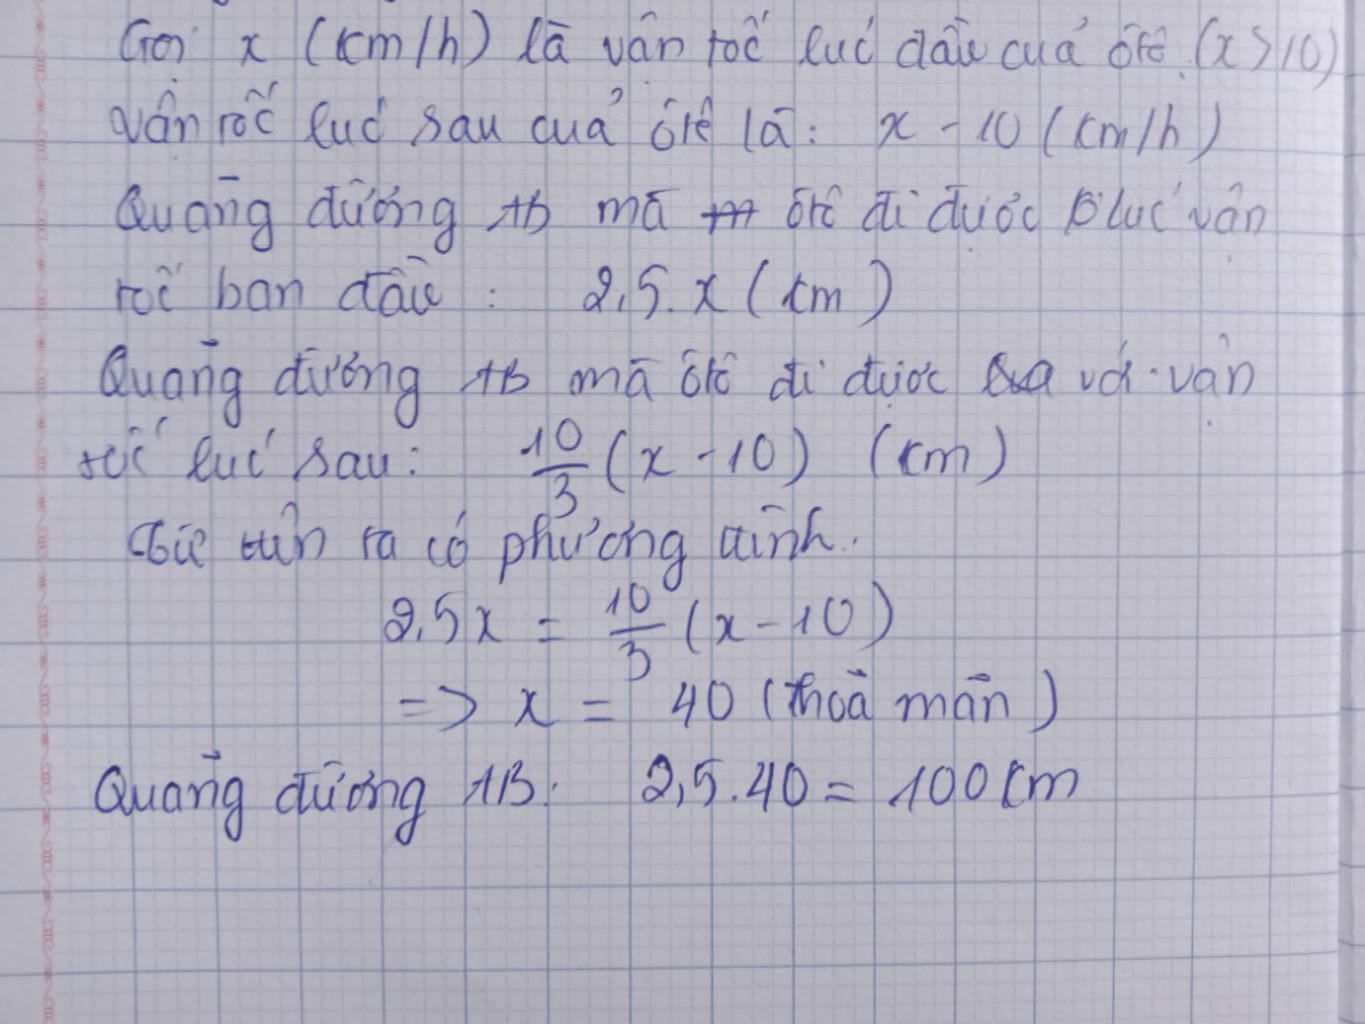 Gọi x (km/h) là vận tốc lúc đầu của ôtô (x > 10)
vận tốc lúc sau của ôtô là: x - 10 (km/h)
Quãng đường AB mà ôtô đi được lúc vận
tốc ban đầu : 2,5. x (km)
Quãng đường AB mà ôtô đi được với vận
tốc lúc sau: 10/3 (x - 10) (km)
trên ra có phương trình.
2,5x = 10/3 (x - 10)
=> x = 40 (thoả mãn)
Quãng đường AB: 2,5.40 = 100 km